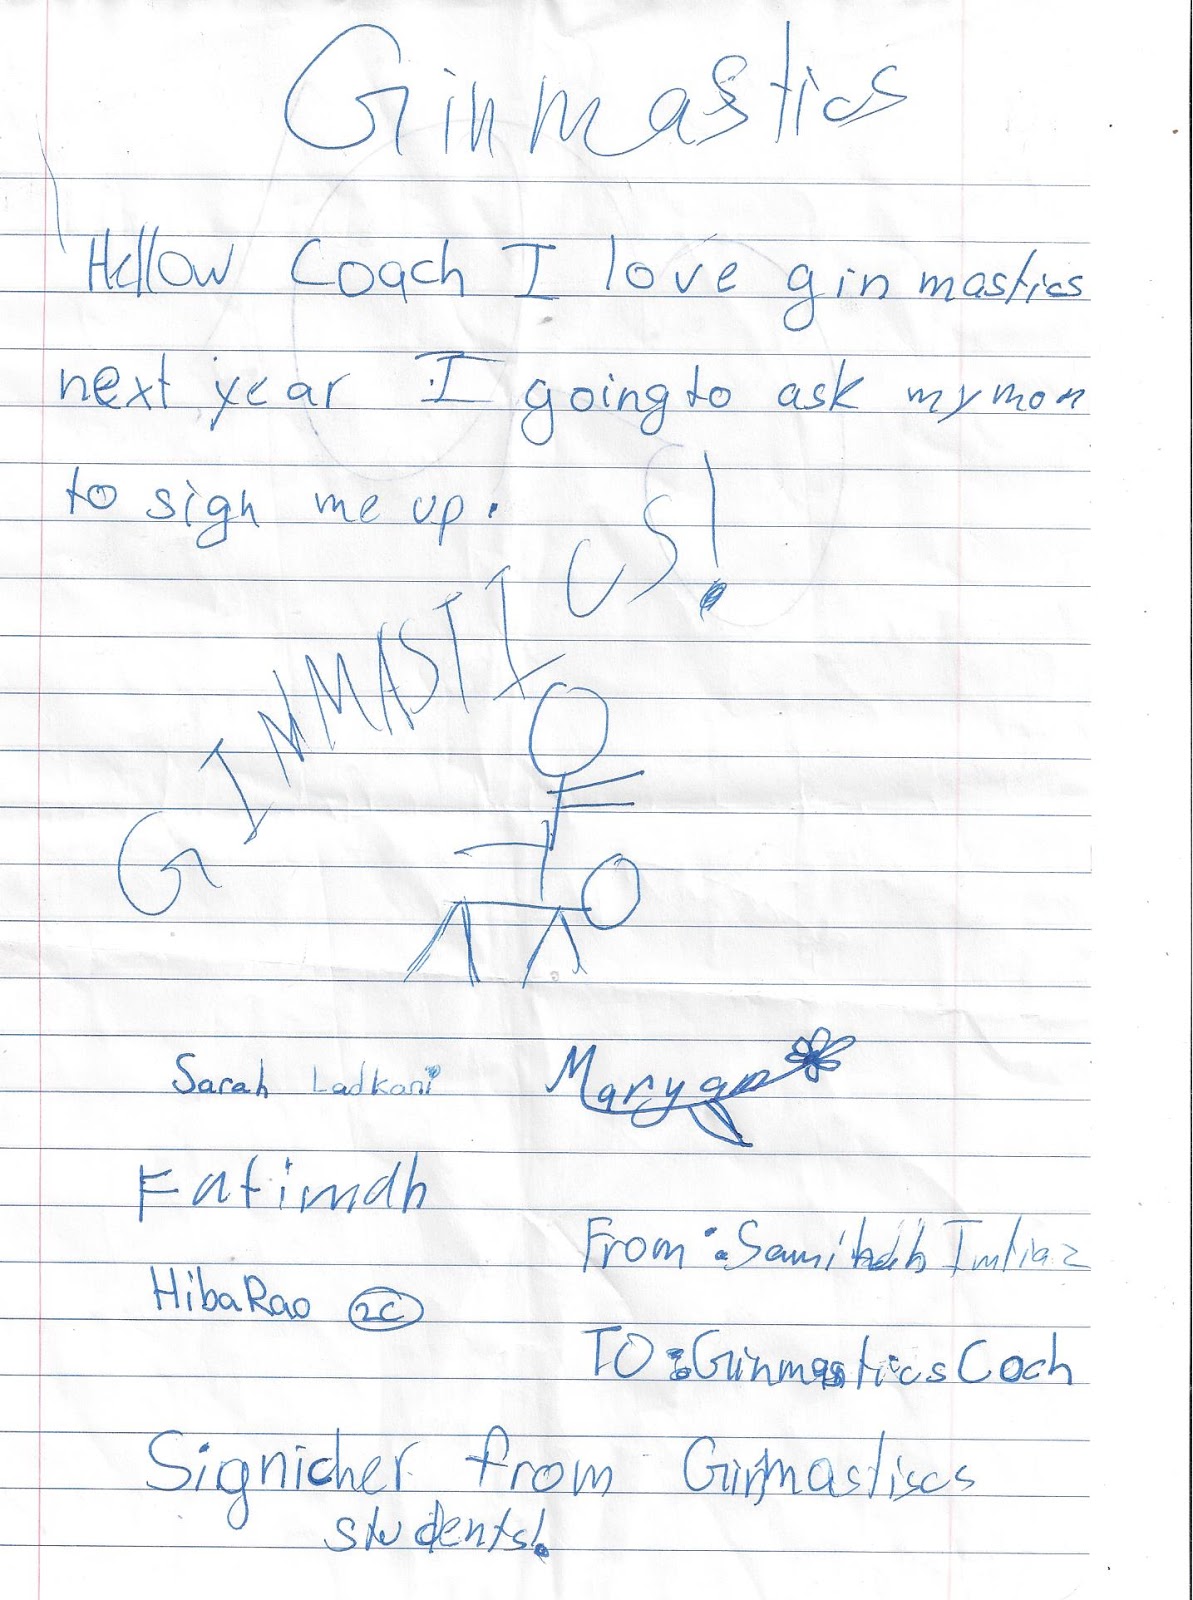 Ginmastics
Hellow Coach I love ginmastics
next year I going to ask my mom
to sign me up.
GINMASTICS!
Sarah Ladkani Maryam
Fatimah
From: Imtiaz
HibaRao 2C
TO: Ginmastics Coch
Signicher from Ginmastiscs
students!